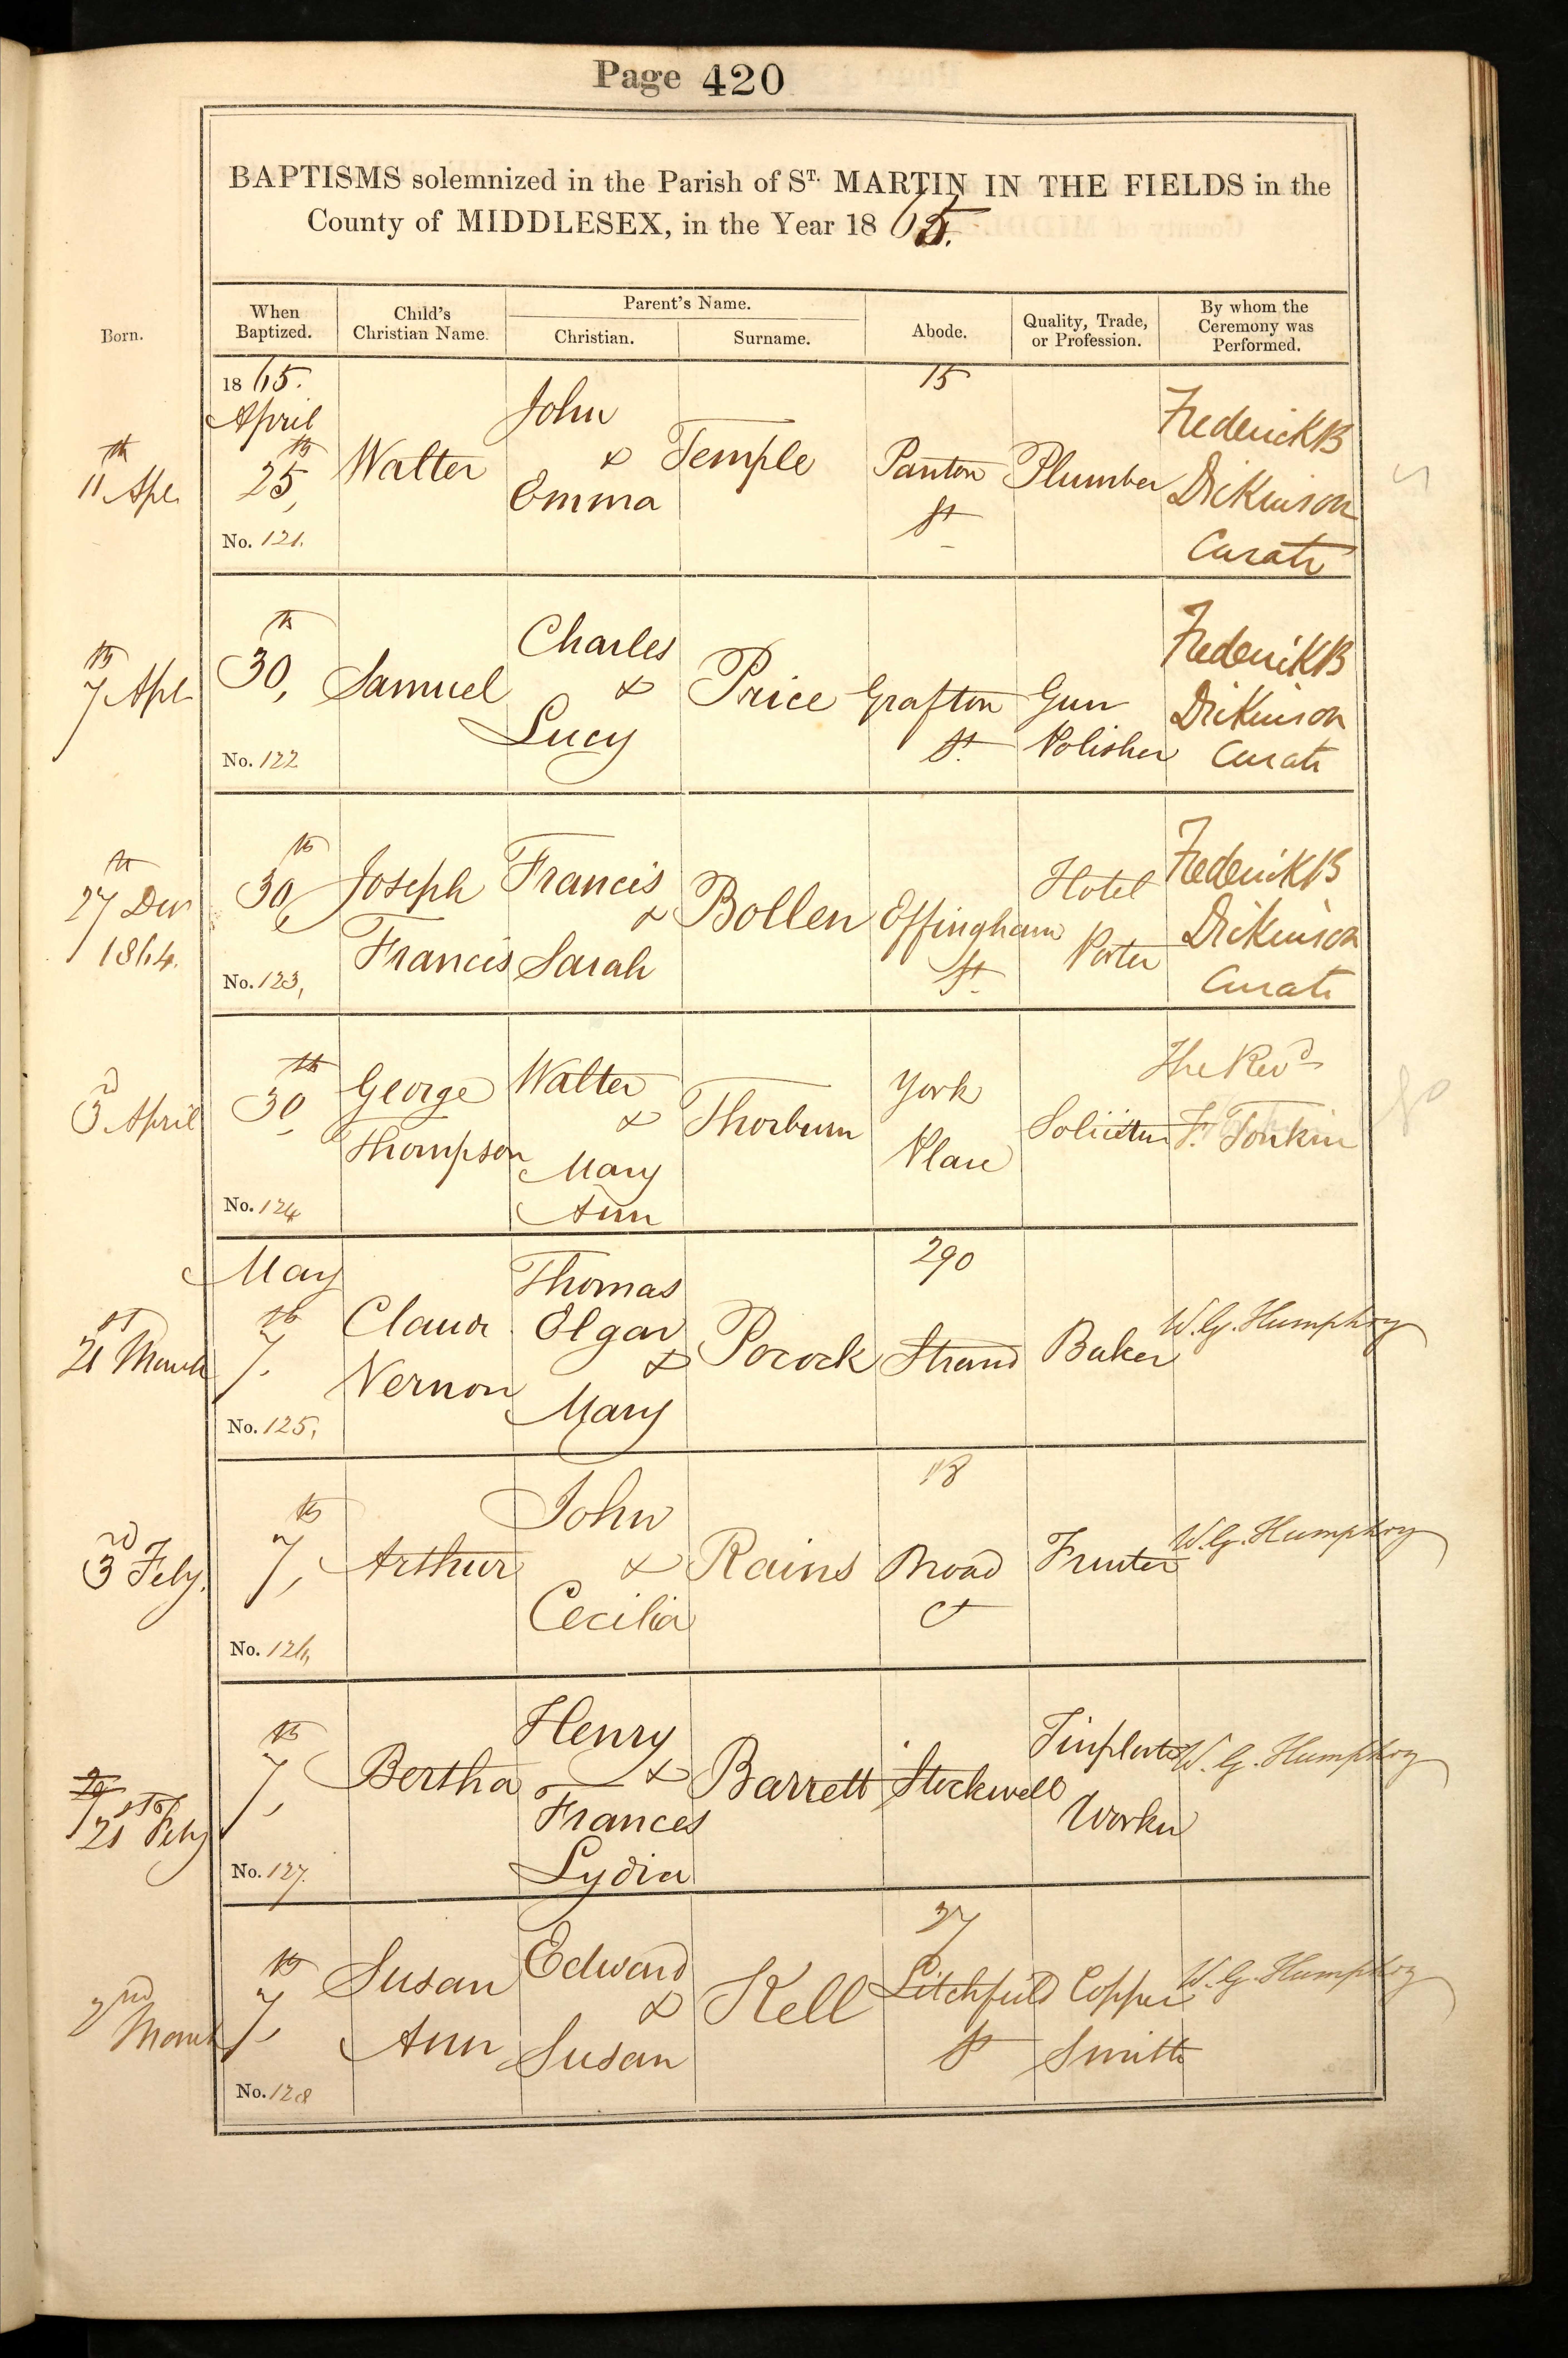 Page 420
BAPTISMS solemnized in the Parish of ST. MARTIN IN THE FIELDS in the
County of MIDDLESEX, in the Year 1865.
Born.
When Baptized.
Child's Christian Name.
Parent's Name.
Christian.
Surname.
Abode.
Quality, Trade, or Profession.
By whom the Ceremony was Performed.
11th Apl
1865.
April
25th,
No. 121.
Walter
John
&
Emma
Temple
15
Panton
St
Plumber
Frederick B
Dickinson
Curate
7th Apl
30th,
No. 122
Samuel
Charles
&
Lucy
Price
Grafton
St.
Gun
Polisher
Frederick B
Dickinson
Curate
27th Decr
1864.
30th,
No. 123,
Joseph
Francis
Francis
&
Sarah
Bollen
Effingham
St.
Hotel
Porter
Frederick B
Dickinson
Curate
3rd April
30th
No. 124
George
Thompson
Walter
&
Mary
Ann
Thorburn
York
Place
Solicitor
The Revd
F. Tonkin
21st March
May
7th.
No. 125,
Claud
Vernon
Thomas
Elgar
&
Mary
Pocock
290
Strand
Baker
W. G. Humphry
3rd Feby.
7th,
No. 126,
Arthur
John
&
Cecilia
Rains
18
Broad
Ct
Printer
W. G. Humphry
21st Feby
7th,
No. 127.
Bertha
Henry
&
Frances
Lydia
Barrett
Stockwell
Tinplate
Worker
W. G. Humphry
2nd
March
7th,
No. 128
Susan
Ann
Edward
&
Susan
Kell
27
Litchfield
St
Copper
Smith
W. G. Humphry